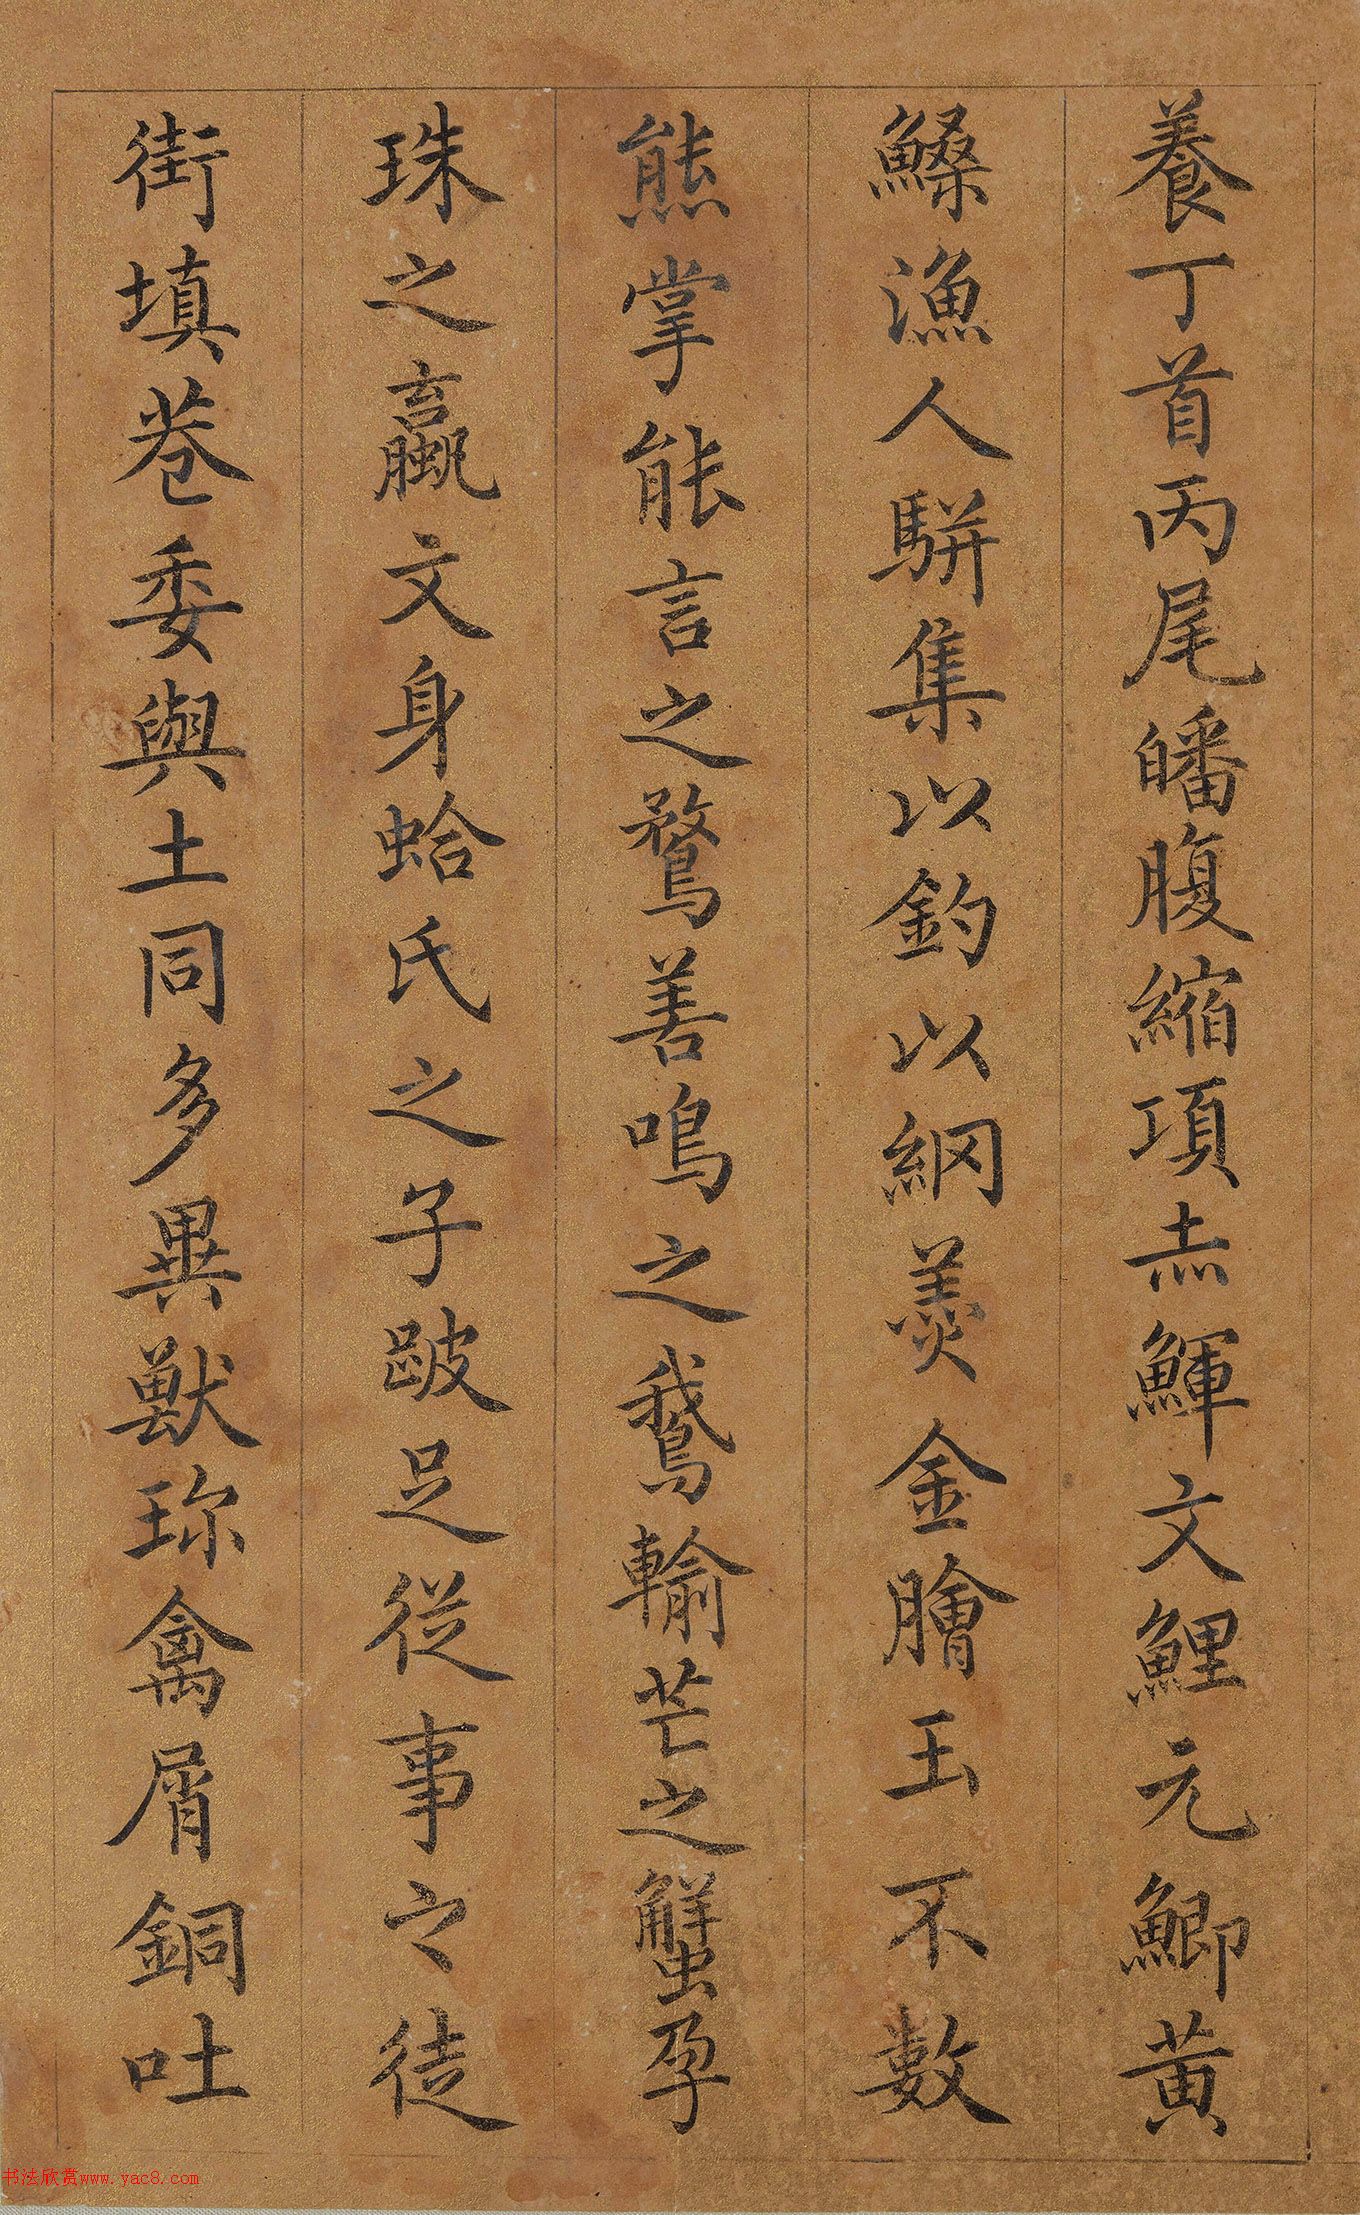 養丁首丙尾皤腹縮項赤鯶文鯉元鯽黄
鱢漁人駢集以釣以網羹金膾玉不數
熊掌能言之鶩善鳴之鵝輸芒之蟹孕
珠之蠃文身蛤氏之子跛足從事之徒
街填巷委與土同多異獸珎禽屑銅吐
书法欣赏www.yac8.com